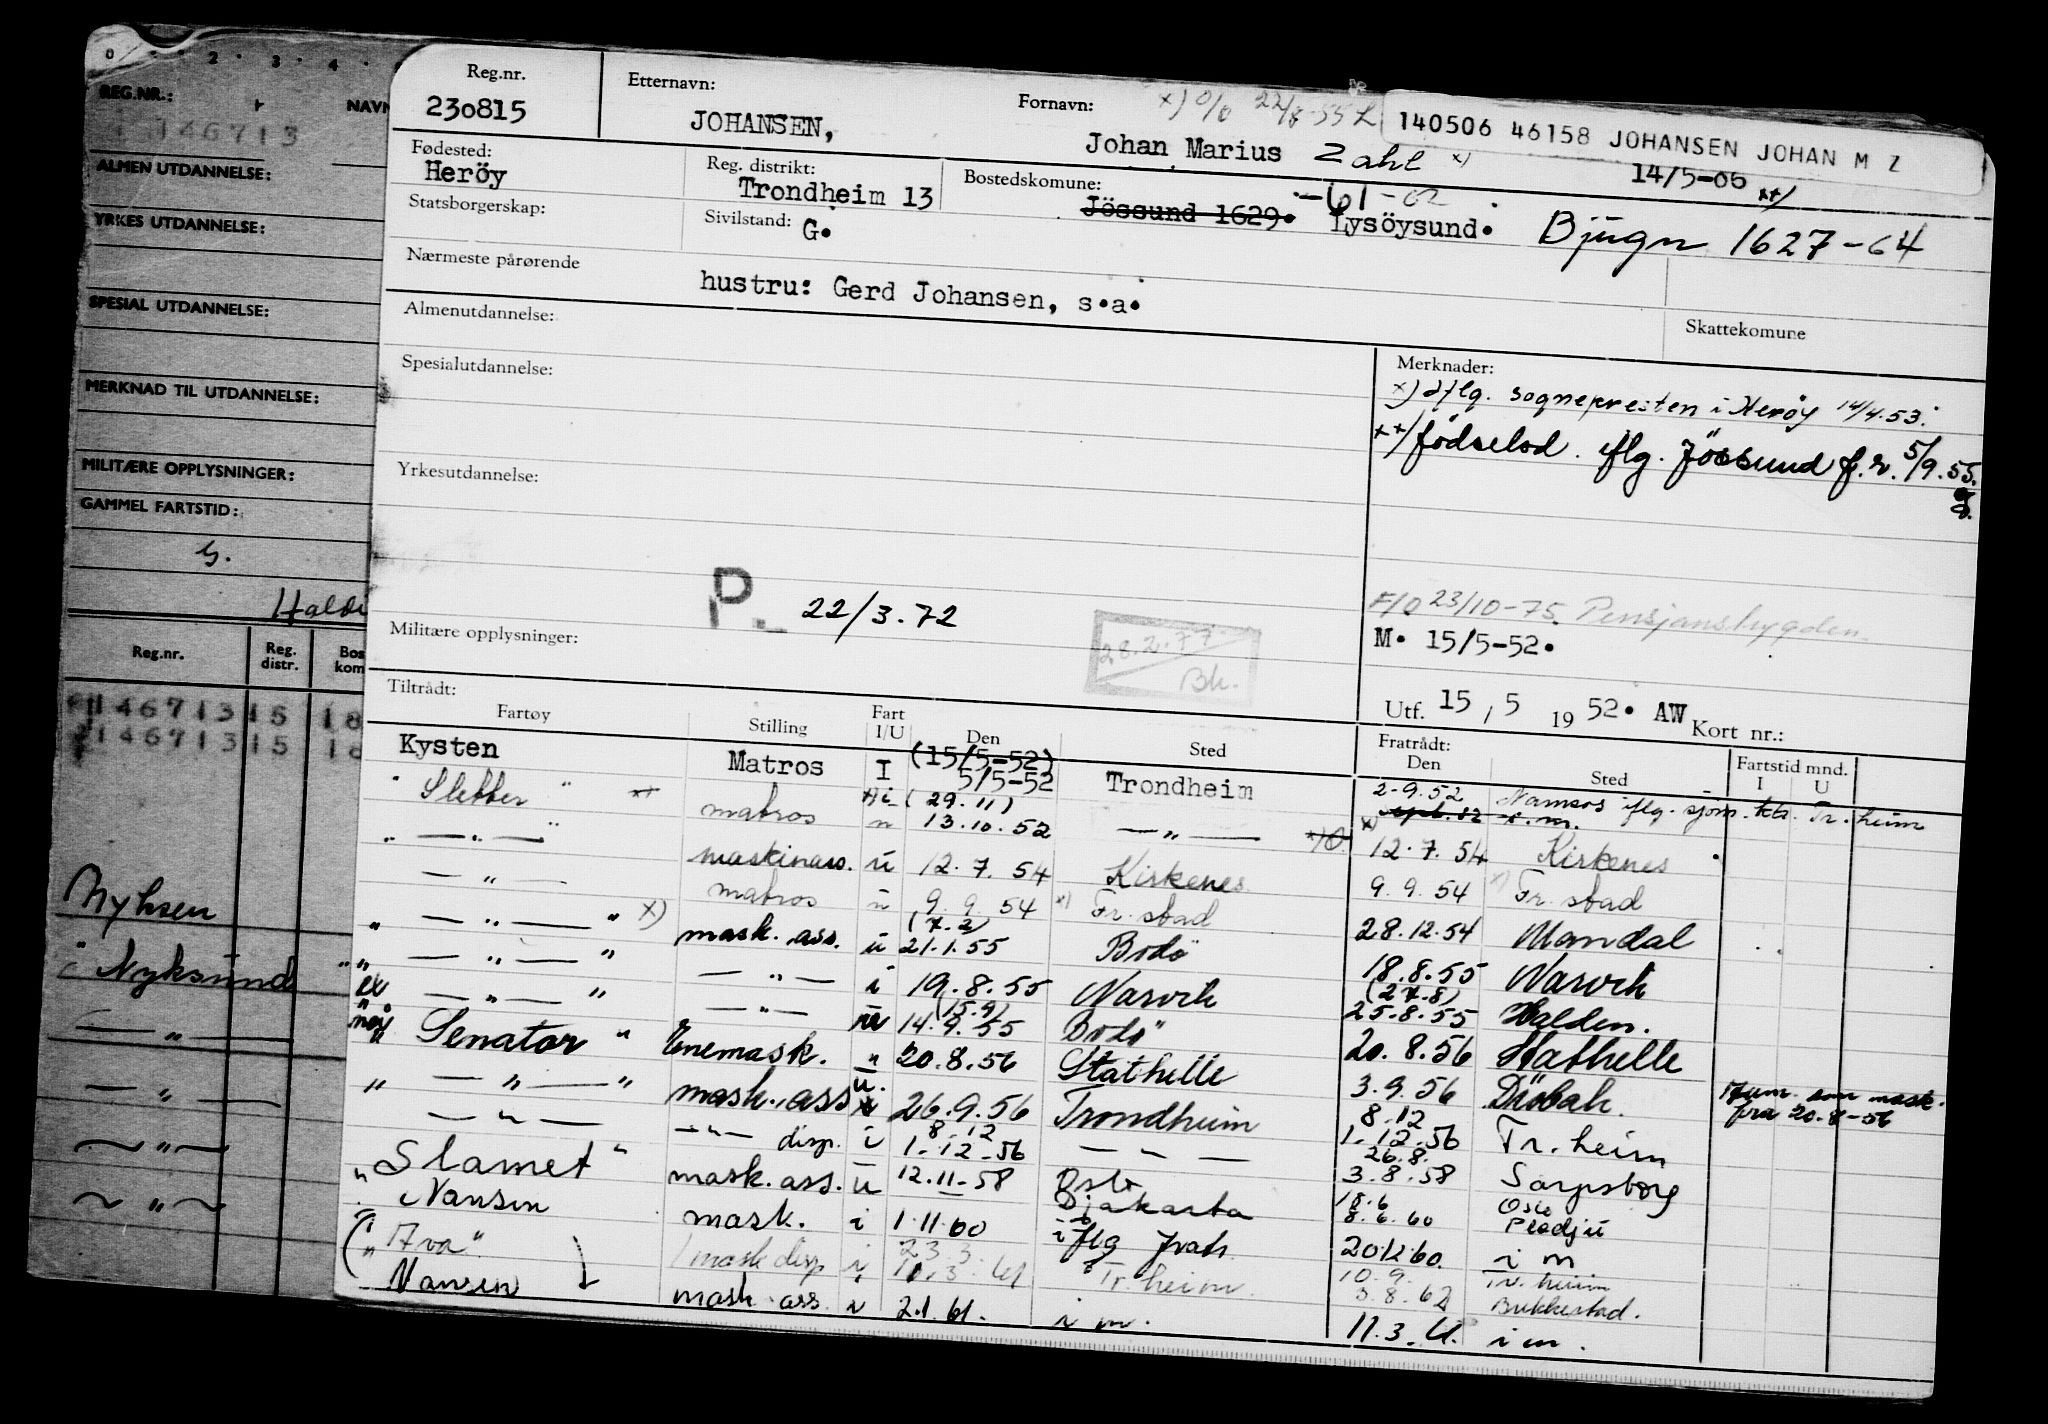 0 · 2 · 3 · 4 ·
REG.NR.: NAVN
146713
ALMEN UTDANNELSE:
YRKES UTDANNELSE:
SPESIAL UTDANNELSE:
MERKNAD TIL UTDANNELSE:
MILITÆRE OPPLYSNINGER:
GAMMEL FARTSTID:
Reg.nr. Reg. distr. Bos kom
146713 15 18
146713 15 18
Nyksund
— " —
— " —
— " —
— " —
Reg.nr. 230815
Etternavn: JOHANSEN,
Fornavn: Johan Marius Zahl x)
x) 22/8-55
140506 46158 JOHANSEN JOHAN M Z
14/5-06 xx/
Fødested: Heröy
Reg. distrikt: Trondheim 13
Bostedskomune: Jössund 1629. -61-62 Lysöysund. Bjugn 1627-64
Statsborgerskap:
Sivilstand: G.
Nærmeste pårørende hustru: Gerd Johansen, s.a.
Skattekomune
Almenutdannelse:
Spesialutdannelse:
Yrkesutdannelse:
Merknader:
x) iflg. sognepresten i Herøy 14/4.53.
xx/ fødselsd. iflg. Jössund f.r. 5/9.55.
P. 22/3.72
F/O 23/10-75. Pensjonstrygden
M. 15/5-52.
Militære opplysninger:
28.2.77
Bh.
Utf. 15 / 5 19 52. AW Kort nr.:
Tiltrådt: Fratrådt:
Fartøy Stilling Fart I/U Den Sted Den Sted Fartstid mnd. I U
Kysten Matros I (15/5-52) 5/5-52 Trondheim 2-9.52 Namsos iflg. sjøm. ktr. Tr.heim
" Sletter " matros (29.11) 13.10.52 — " — 12.7.54 Kirkenes
" — " — " maskinass. u 12.7.54 Kirkenes 9.9.54 x) Fr.stad
— " — matros u 9.9.54 x) Fr.stad 28.12.54 Mandal
" — " — " x) mask. ass. u (7.2) 21.1.55 Bodö 18.8.55 Narvik
" — " — " — " — i 19.8.55 Narvik (27.8) 25.8.55 Halden.
— " — " — " — (15.9) 14.9.55 Bodö 20.8.56 Stathelle
" Senator " Enemask. " 20.8.56 Stathelle 3.9.56 Dröbak. som mask. fra 20.8-56
" — " — " mask. ass u. 26.9.56 Trondheim 8.12 1.12.56 Tr.heim
— " — — " — disp. i 8.12 1.12-56 — " — 26.8. 3.8.58 Sarpsborg
" Slamet " mask. ass. u 12.11-58 Oslo Djakarta 18.6 8.6.60 Oslo Pladju
Nansen mask. i 1.11.60 iflg 20.12.60. i m
" Ava " mask disp i 23.3. 11.3.61 Tr.heim. 10.9. 3.8.62 Tr.heim
Nansen mask. ass. i 2.1.61. i m. 11.3.61. i m.